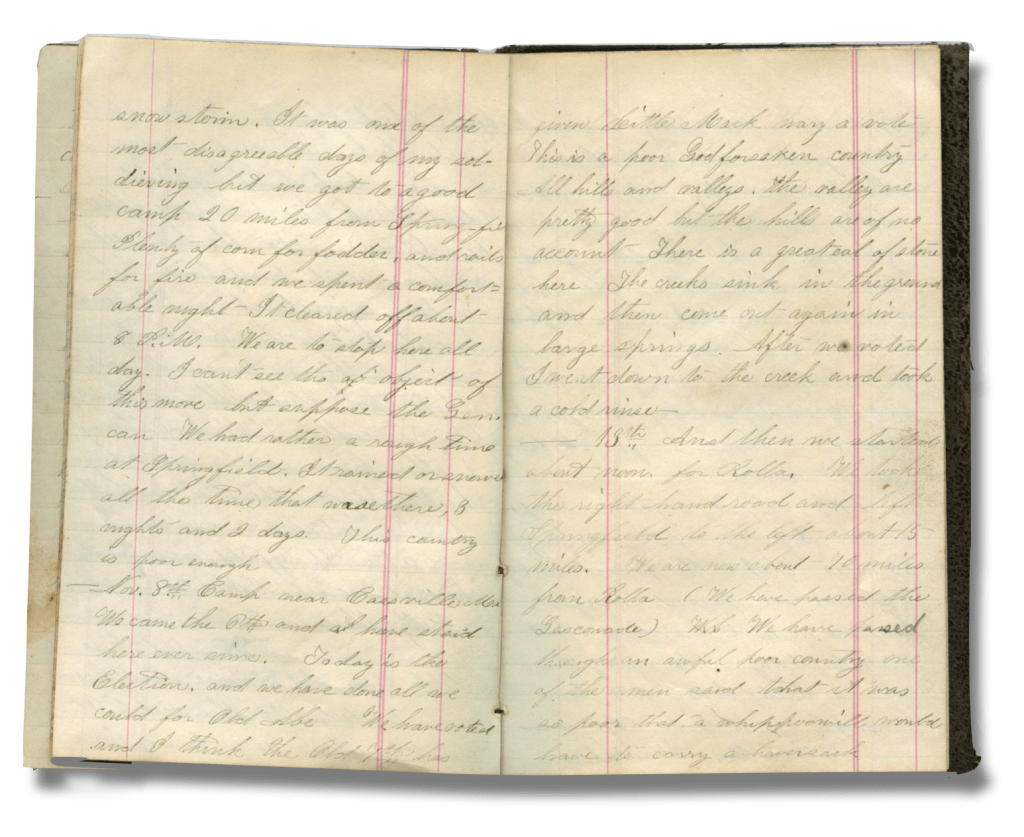 snow storm. It was one of the
most disagreeable days of my sol-
diering but we got to a good
camp 20 miles from Spring-fi
Plenty of corn for fodder, and rails
for fire and we spent a comfort=
able night It cleared off about
8 P.M. We are to stop here all
day. I can't see the object of
this move but suppose the Gen.
can We had rather a rough time
at Springfield. It rained or snowed
all the time that was there, 3
nights and 2 days. This country
is poor enough
— Nov. 8th Camp near Cassville Mo
We came the 6th and have staid
here ever since. Today is the
Election. and we have done all we
could for Old Abe We have voted
and I think the Old 7th has
given Little Mack nary a vote
This is a poor Godforsaken country
All hills and valleys. the valley are
pretty good but the hills are of no
account There is a great eal of stone
here The creeks sink in the ground
and then come out again in
large springs. After we voted
I went down to the creek and took
a cold rinse —
— 13th And then we started
about noon. for Rolla. We took
the right hand road and left
Springfield to the left about 15
miles. We are now about 70 miles
from Rolla (We have passed the
Gasconade) We have passed
through an awful poor country one
of the men said that it was
so poor that a whippoowill would
have to carry a haversack